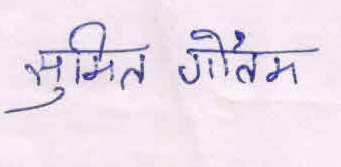 सुमित गौतम